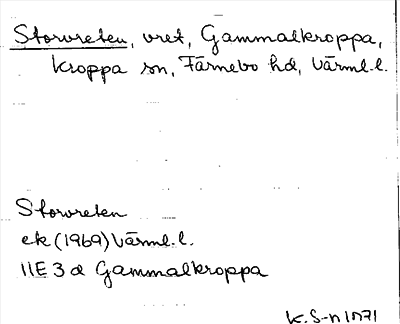 Storvreten, vret, Gammalkroppa,
Kroppa sn, Färnebo hd, Värml. l.
Storvreten
ek (1969) Värml. l.
11E 3 d Gammalkroppa
K. S-n 1971